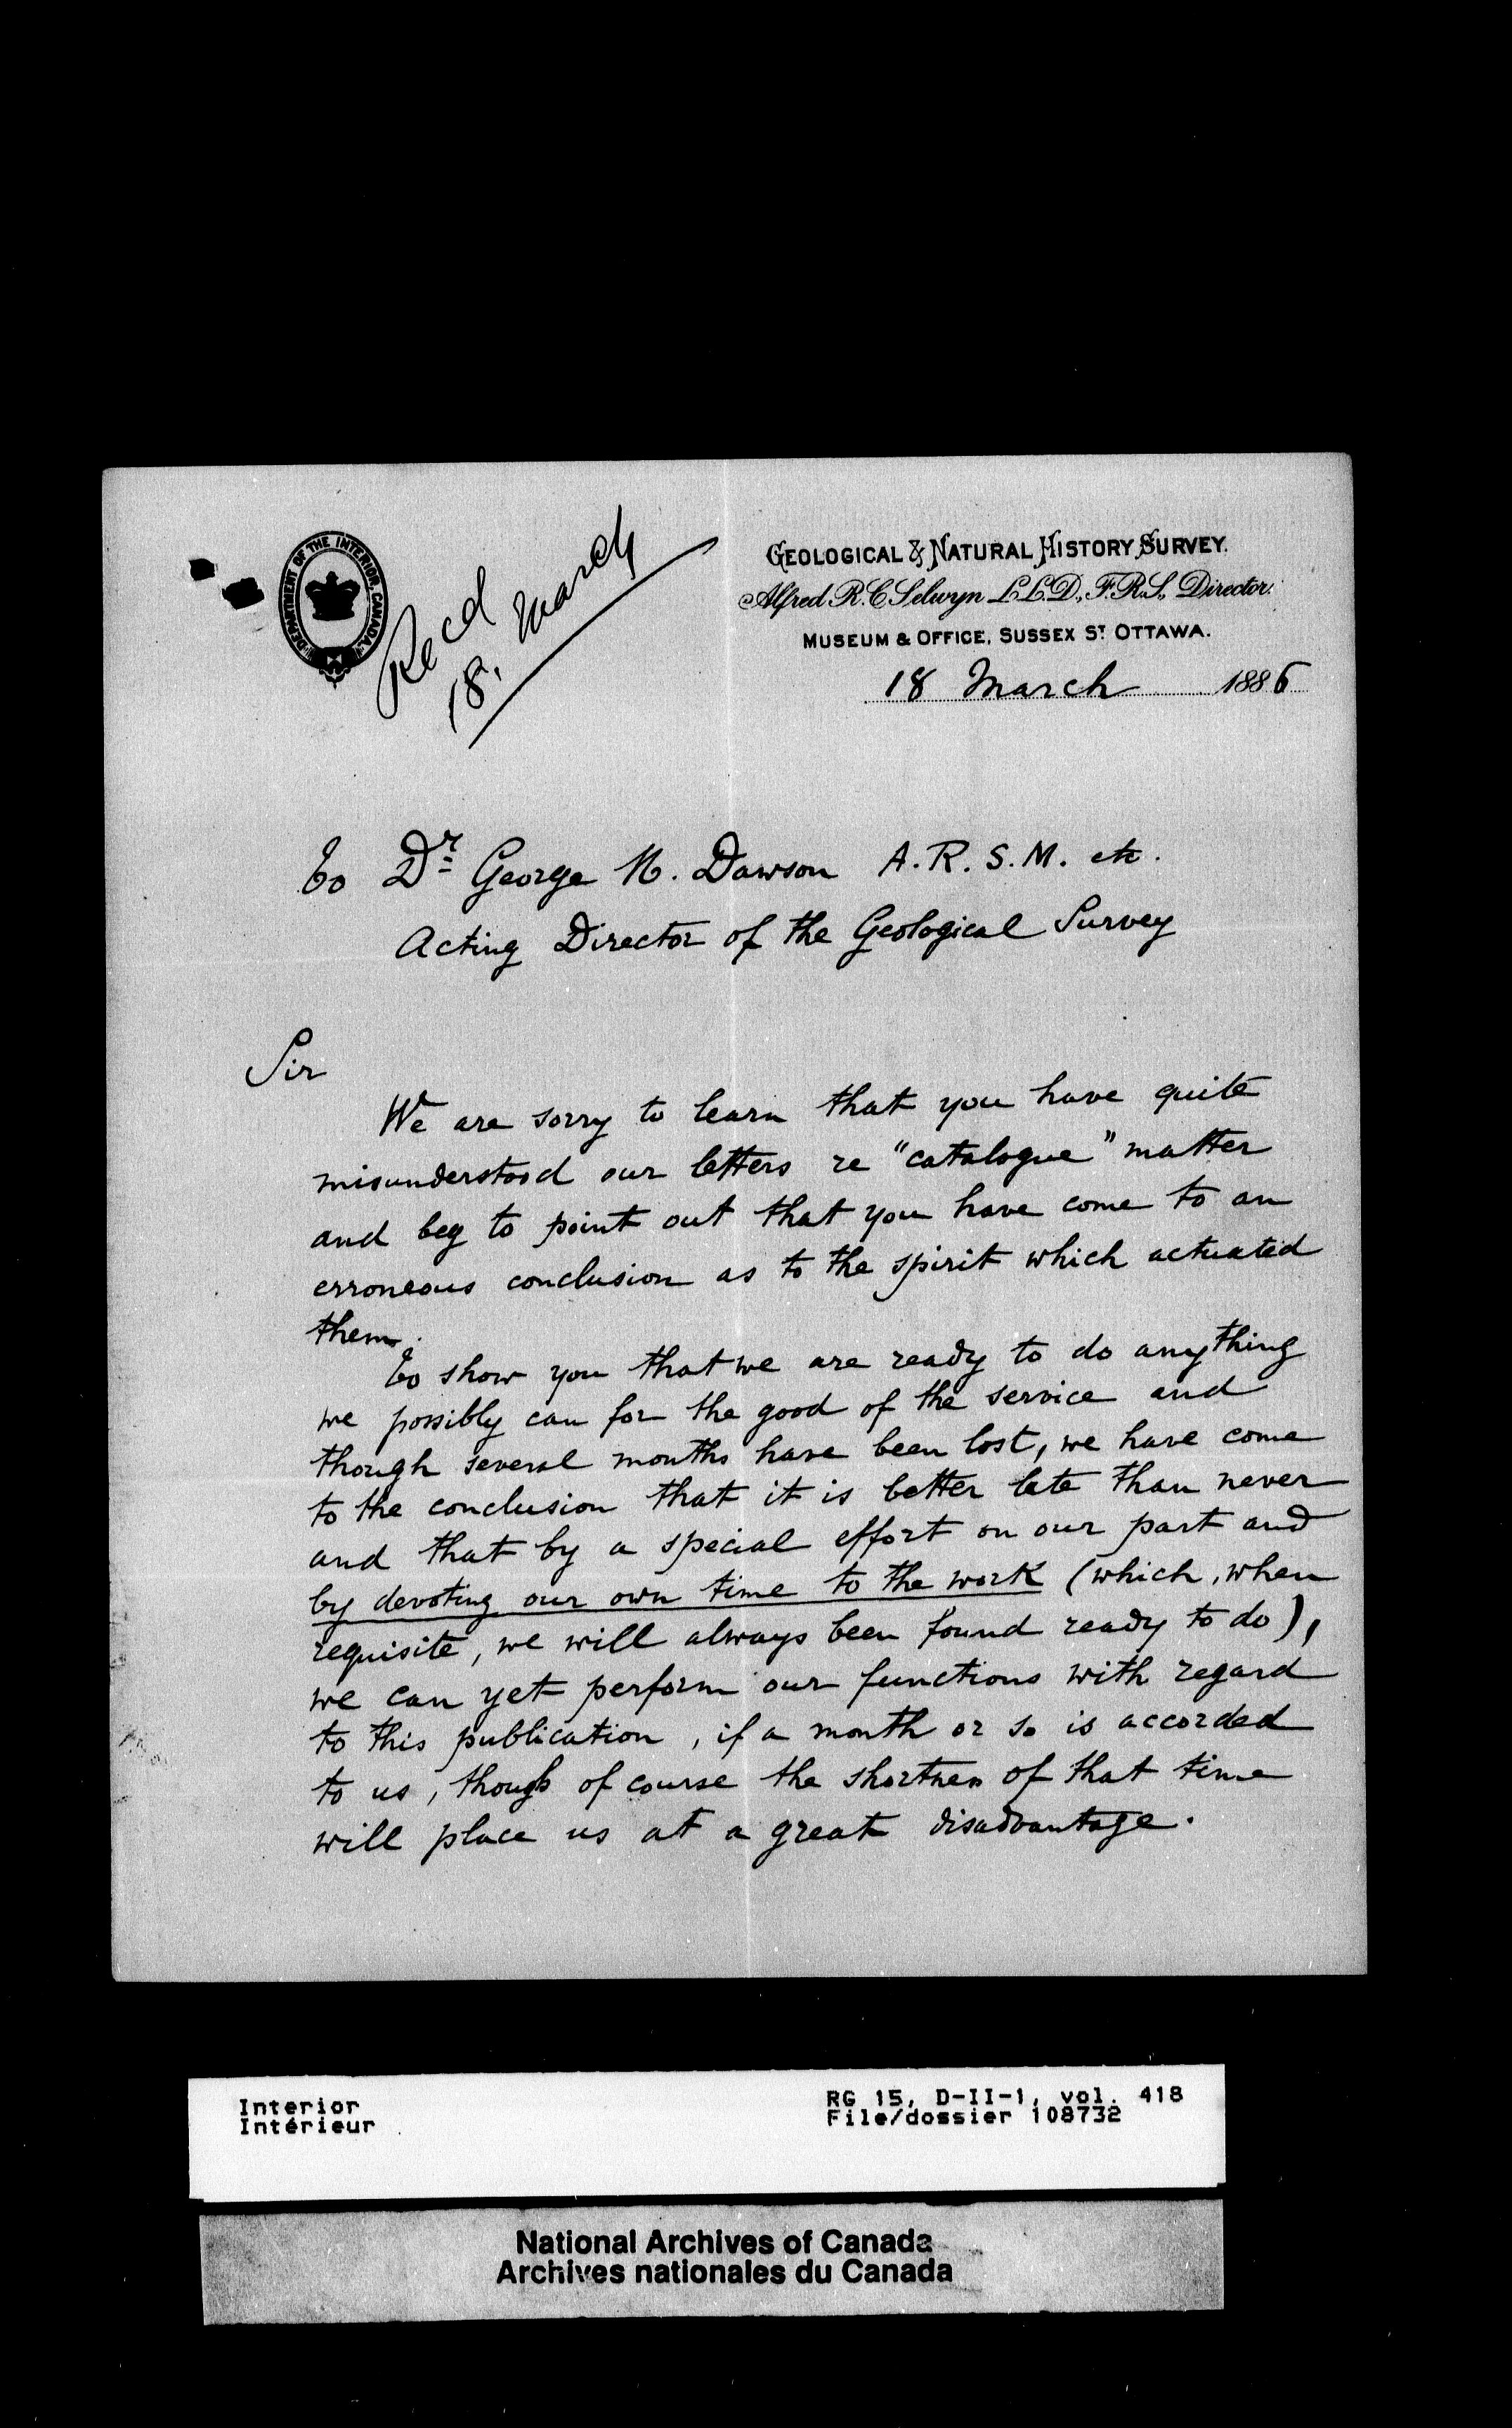 DEPARTMENT OF THE INTERIOR, CANADA.
Recd
18. March
GEOLOGICAL & NATURAL HISTORY SURVEY.
Alfred R. C. Selwyn L.L.D., F.R.S., Director.
MUSEUM & OFFICE, SUSSEX ST OTTAWA.
18 March 1886
To Dr George M. Dawson A.R.S.M. etc.
Acting Director of the Geological Survey
Sir
We are sorry to learn that you have quite
misunderstood our letters re "catalogue" matter
and beg to point out that you have come to an
erroneous conclusion as to the spirit which actuated
them.
To show you that we are ready to do anything
we possibly can for the good of the service and
though several months have been lost, we have come
to the conclusion that it is better late than never
and that by a special effort on our part and
by devoting our own time to the work (which, when
requisite, we will always been found ready to do),
we can yet perform our functions with regard
to this publication, if a month or so is accorded
to us, though of course the shortness of that time
will place us at a great disadvantage.
Interior
Intérieur
RG 15, D-II-1, vol. 418
File/dossier 108732
National Archives of Canada
Archives nationales du Canada